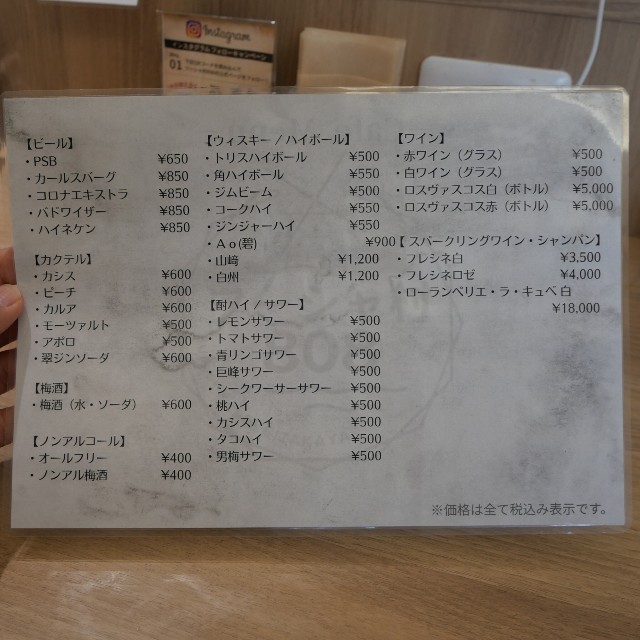 Instagram
インスタグラムフォローキャンペーン
01
【ビール】
・PSB ¥650
・カールスバーグ ¥850
・コロナエキストラ ¥850
・バドワイザー ¥850
・ハイネケン ¥850
【カクテル】
・カシス ¥600
・ピーチ ¥600
・カルア ¥600
・モーツァルト ¥500
・アポロ ¥500
・翠ジンソーダ ¥600
【梅酒】
・梅酒（水・ソーダ） ¥600
【ノンアルコール】
・オールフリー ¥400
・ノンアル梅酒 ¥400
【ウィスキー / ハイボール】
・トリスハイボール ¥500
・角ハイボール ¥550
・ジムビーム ¥500
・コークハイ ¥550
・ジンジャーハイ ¥550
・Ao(碧) ¥900
・山﨑 ¥1,200
・白州 ¥1,200
【酎ハイ / サワー】
・レモンサワー ¥500
・トマトサワー ¥500
・青リンゴサワー ¥500
・巨峰サワー ¥500
・シークワーサーサワー ¥500
・桃ハイ ¥500
・カシスハイ ¥500
・タコハイ ¥500
・男梅サワー ¥500
【ワイン】
・赤ワイン（グラス） ¥500
・白ワイン（グラス） ¥500
・ロスヴァスコス白（ボトル） ¥5,000
・ロスヴァスコス赤（ボトル） ¥5,000
【スパークリングワイン・シャンパン】
・フレシネ白 ¥3,500
・フレシネロゼ ¥4,000
・ローランペリエ・ラ・キュベ 白
¥18,000
※価格は全て税込み表示です。